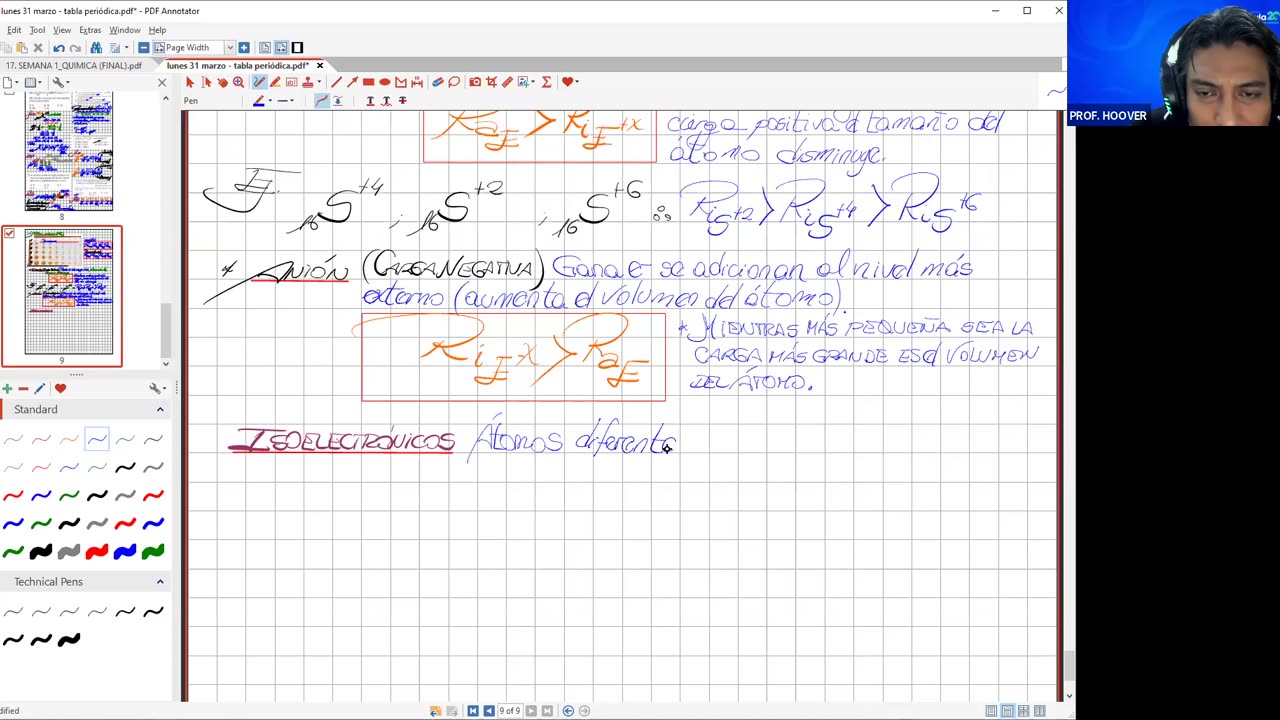 lunes 31 marzo - tabla periódica.pdf* - PDF Annotator
Edit Tool View Extras Window Help
Page Width
17. SEMANA 1_QUIMICA (FINAL).pdf
lunes 31 marzo - tabla periódica.pdf*
Pen
8
9
Standard
Technical Pens
PROF. HOOVER
RaE > RiE+x
carga positiva el tamaño del
átomo disminuye.
Ej. 16S+4 ; 16S+2 ; 16S+6 ∴ RiS+2 > RiS+4 > RiS+6
* ANIÓN (CARGA NEGATIVA) Gana e- se adicionan al nivel más
externo (aumenta el volumen del átomo).
RiE-x > RaE
* MIENTRAS MÁS PEQUEÑA SEA LA
CARGA MÁS GRANDE ES el VOLUMEN
DEL ÁTOMO.
ISOELECTRÓNICOS Átomos diferente
dified
9 of 9